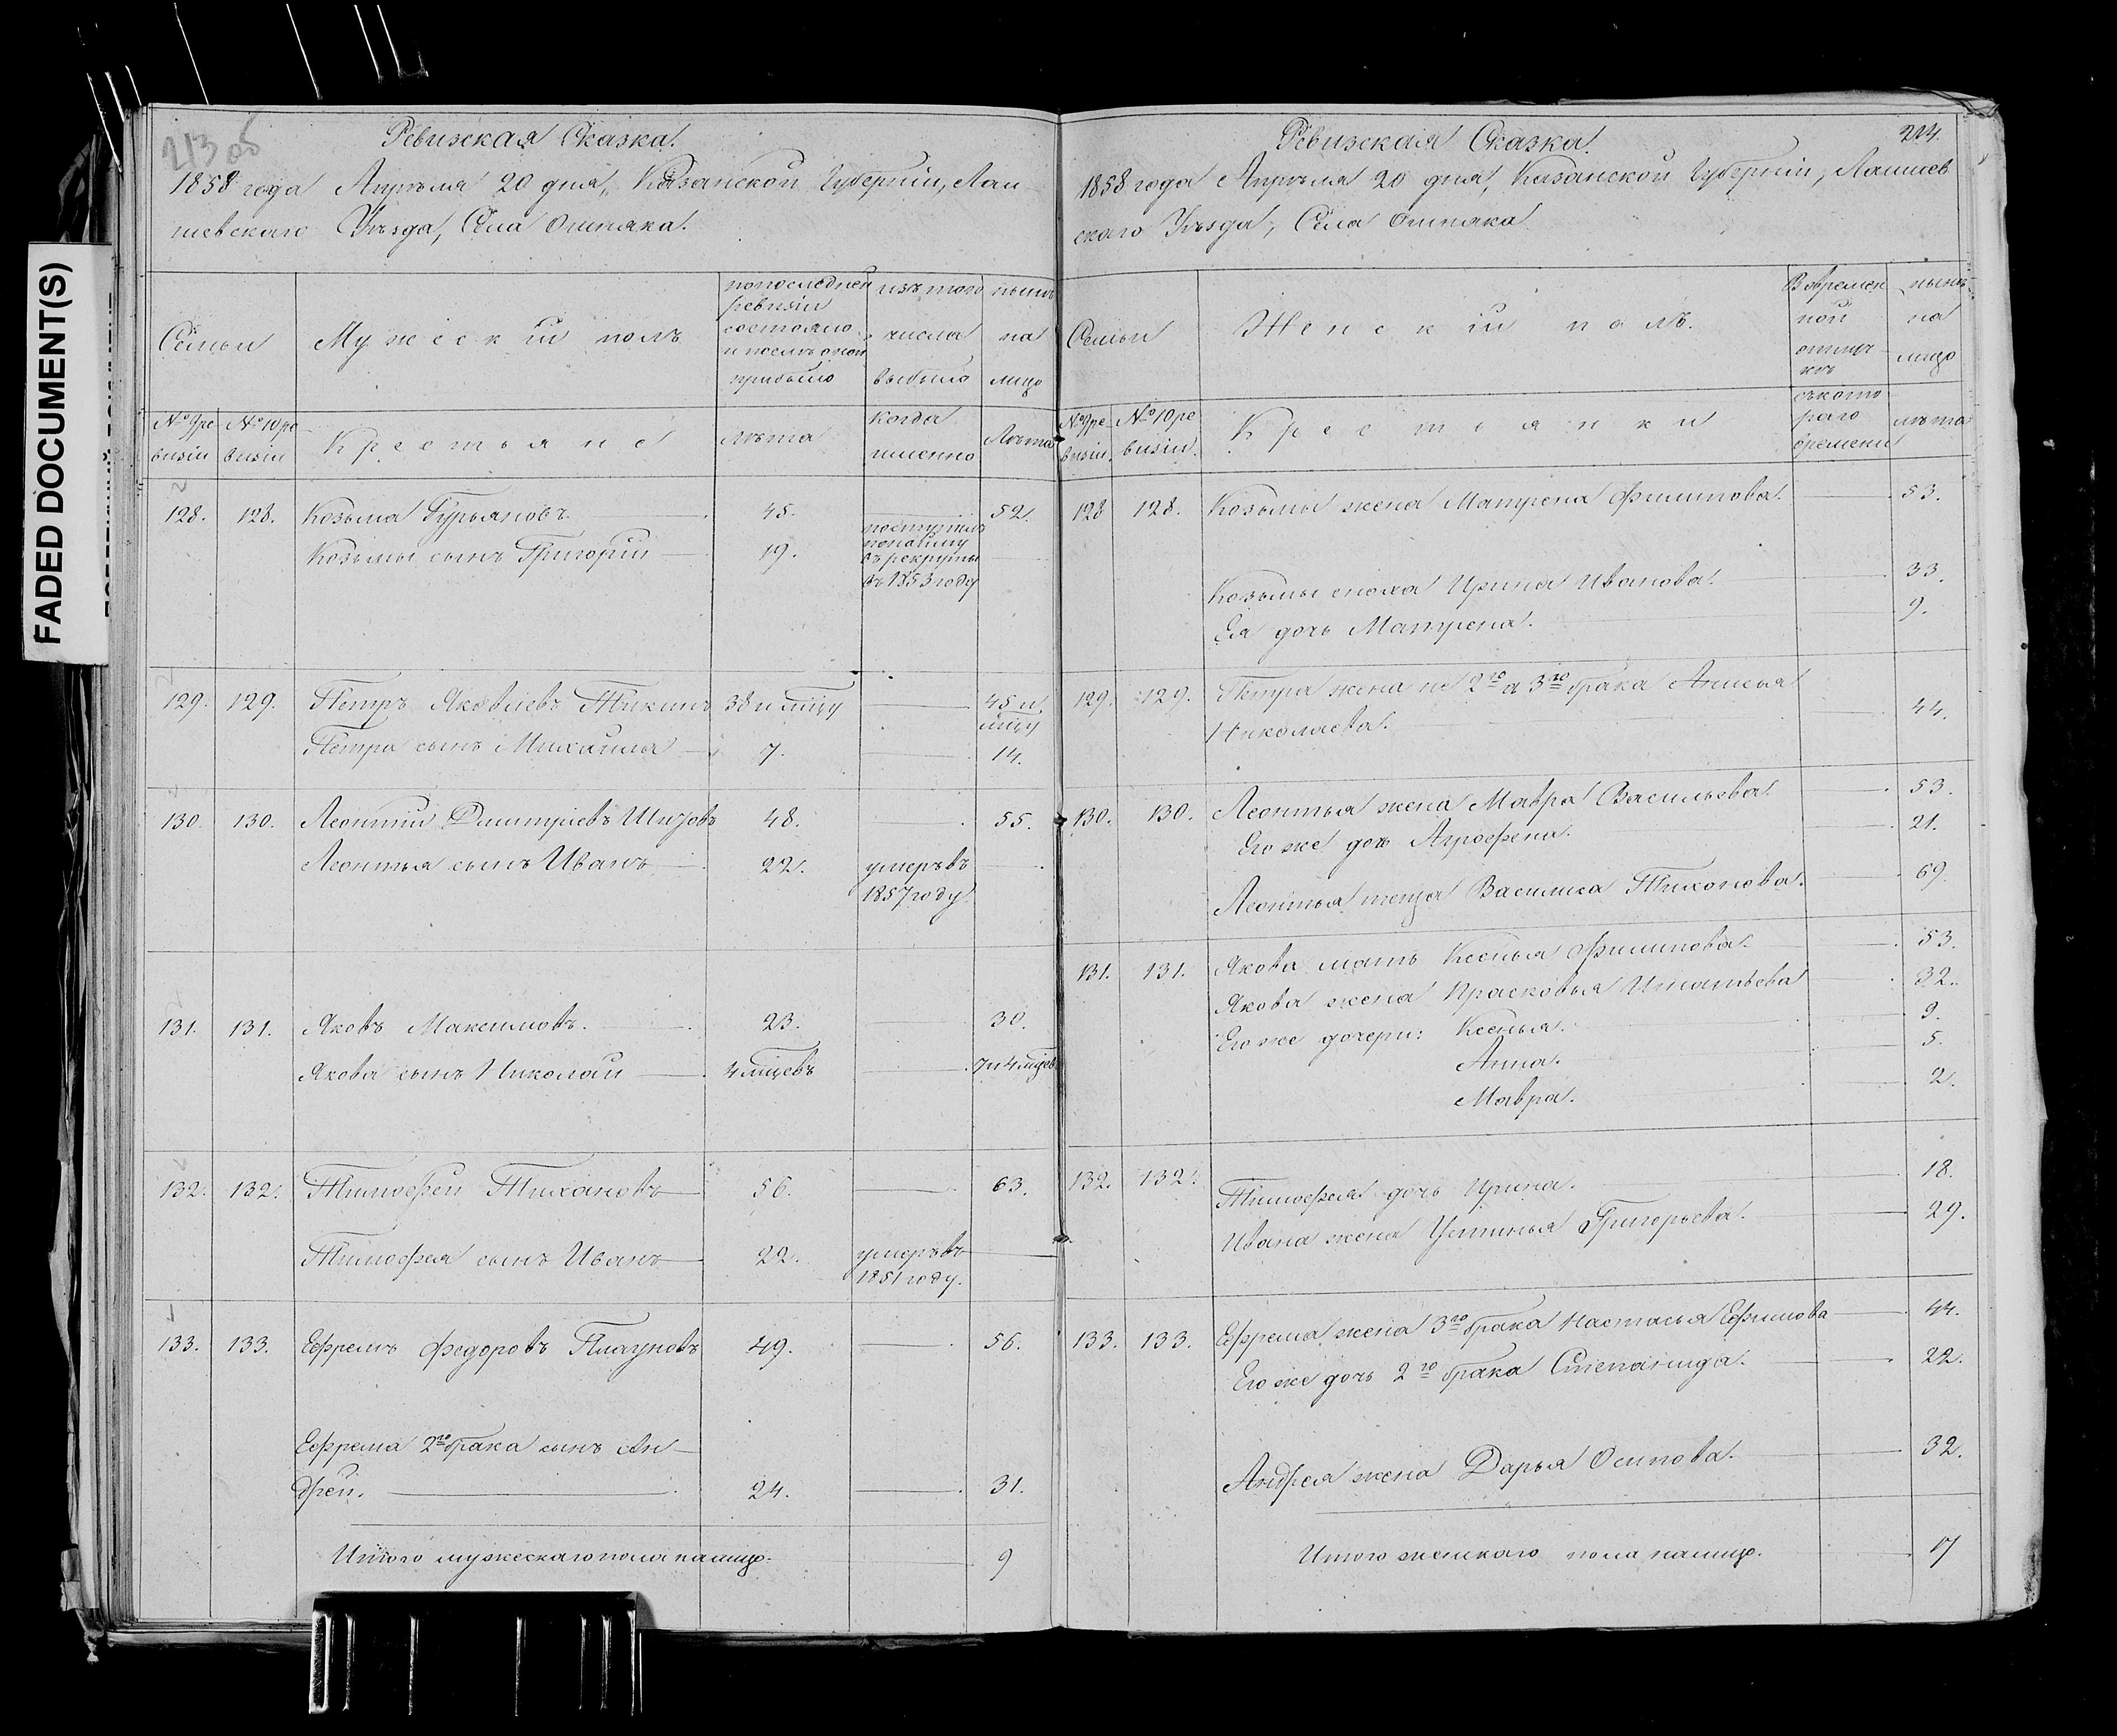 FADED DOCUMENT(S)
213 об
Ревизская Сказка.
1858 года Апрѣля 20 дня, Казанской Губерніи, Лаи
шевскаго Уѣзда, Села Ошняка.
Семьи
Мужескій полъ
по последней
ревизіи
состояло
и послѣ оной
прибыло
изъ того
числа
выбыло
нынѣ
на
лицо
№ 9 ре
визіи
№ 10 ре
визіи
Крестьяне
лѣта
когда
именно
Лѣта
128. 128. Козьма Гурьяновъ 45. 52.
Козьмы сынъ Григорій 19. поступилъ
по найму
въ рекруты
въ 1853 году
129. 129. Петръ Яковлевъ Тикинъ 38 и мцу 45 и
мцу
Петра сынъ Михайла 7. 14.
130. 130. Леонтій Дмитріевъ 48. 55.
Леонтья сынъ Иванъ 22. умеръ въ
1857 году.
131. 131. Яковъ Максимовъ. 23. 30.
Якова сынъ Николай 4 мцевъ 7 и 4 мцев
132. 132. Тимофей Тихановъ 56. 63.
Тимофея сынъ Иванъ 22. умеръ въ
1851 году.
133. 133. Ефремъ Федоровъ Плауновъ 49. 56.
Ефрема 2го брака сынъ Ан
дрей. 24. 31.
Итого мужескаго пола налицо. 9
Ревизская Сказка.
214.
1858 года Апрѣля 20 дня, Казанской Губерніи, Лаишев
скаго Уѣзда, Села Ошняка
Семьи
Женскій полъ.
Во времен
ной
отлуч
кѣ
нынѣ
на
лицо
№ 9 ре
визіи.
№ 10 ре
визіи.
Крестьянки
съ кото
раго
времени
лѣта
128 128. Козьмы жена Матрена Филипова. 53.
Козьмы сноха Ирина Иванова. 33.
Ея дочь Матрена. 9.
129. 129. Петра жена не 2го а 3го брака Анисья
Николаева. 44.
130. 130. Леонтья жена Мавра Васильева. 53.
Его же дочь Агрофена. 21.
Леонтья теща Василиса Тихонова. 69.
131. 131. Якова мать Ксенья Филипова. 53.
Якова жена Прасковья Игнатьева 32.
Его же дочери: Ксенья. 9.
Анна. 5.
Мавра. 2.
132. 132. Тимофея дочь Ирина. 18.
Ивана жена Устинья Григорьева. 29.
133. 133. Ефрема жена 3го брака Настасья Ефимова 44.
Его же дочь 2го брака Степанида. 22.
Андрея жена Дарья Осипова. 32.
Итого женскаго пола налицо. 17